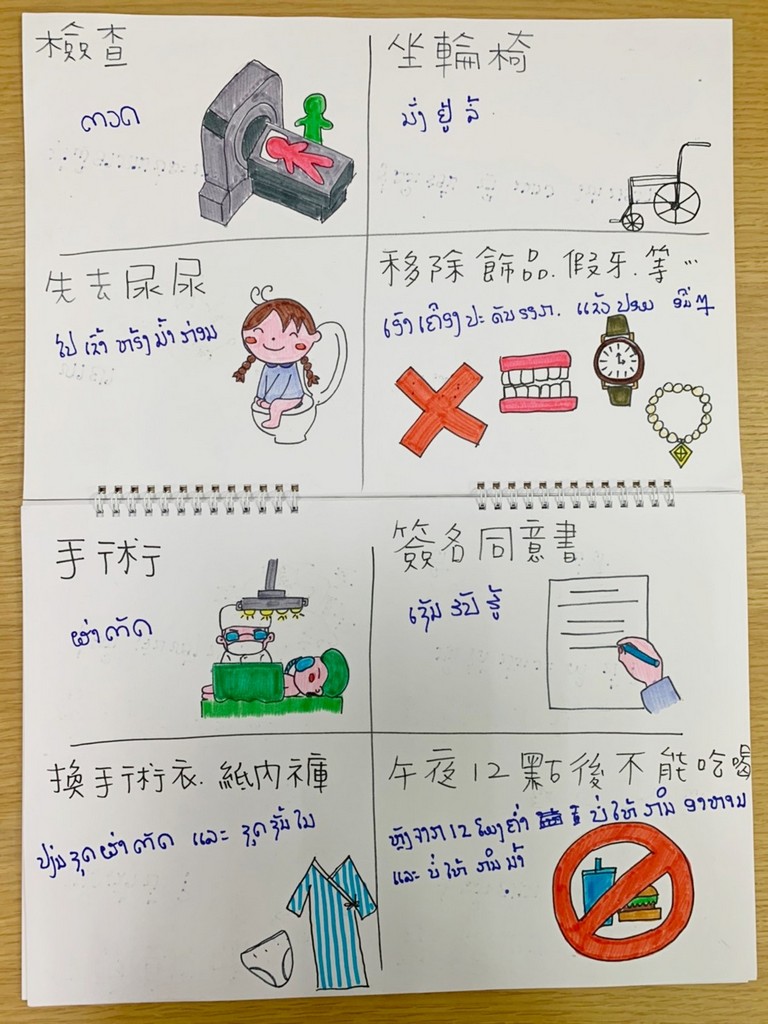 檢查
ກວດ
坐輪椅
ນັ່ງ ຢູ່ ລໍ້
先去尿尿
ໄປ ເຂົ້າ ຫ້ອງ ນ້ຳ ກ່ອນ
移除飾品.假牙.等…
ເອົາ ເຄື່ອງ ປະ ດັບ ອອກ. ແຂ້ວ ປອມ ອື່ນໆ
手術
ຜ່າ ຕັດ
簽名同意書
ເຊັນ ຮັບ ຮູ້
換手術衣.紙內褲
ປ່ຽນ ຊຸດ ຜ່າ ຕັດ ແລະ ຊຸດ ຊັ້ນ ໃນ
午夜12點後不能吃喝
ຫຼັງ ຈາກ 12 ໂມງ ຄ່ຳ ບໍ່ ໃຫ້ ກິນ ອາຫານ
ແລະ ບໍ່ ໃຫ້ ກິນ ນ້ຳ